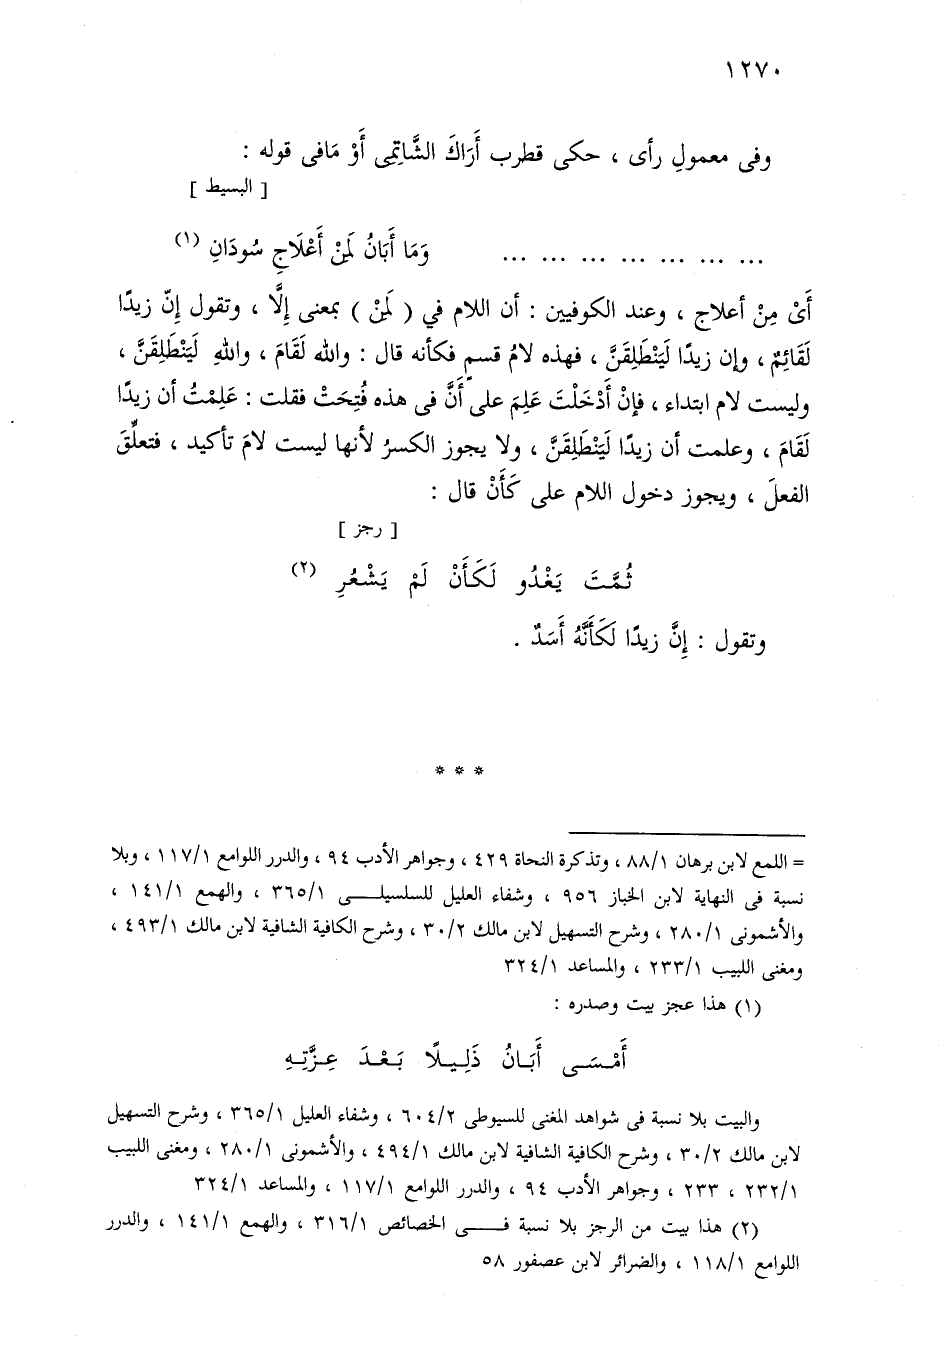 ١٢٧٠
وفى معمولِ رأى ، حكى قطرب أَرَاكَ الشَّاتِمِى أَوْ مَافى قوله :
[ البسيط ]
... ... ... ... ... ... ... وَمَا أَبَانُ لَمِنْ أَعْلَاجِ سُودَانِ (١)
أَىْ مِنْ أعلاج ، وعند الكوفيين : أن اللام في ( لَمِنْ ) بمعنى إِلَّا ، وتقول إِنّ زيدًا
لَقَائِمٌ ، وإن زيدًا لَيَنْطَلِقَنَّ ، فهذه لامُ قسمٍ فكأنه قال : والله لَقَامَ ، واللهِ لَيَنْطَلِقَنَّ ،
وليست لام ابتداء ، فإنْ أَدْخَلْتَ عَلِمَ على أَنَّ فى هذه فُتِحَتْ فقلت : عَلِمْتُ أن زيدًا
لَقَامَ ، وعلمت أن زيدًا لَيَنْطَلِقَنَّ ، ولا يجوز الكسرُ لأنها ليست لامَ تأكيد ، فتعلِّقَ
الفعلَ ، ويجوز دخول اللام على كَأَنْ قال :
[ رجز ]
ثُمَّتَ يَغْدُو لَكَأَنْ لَمْ يَشْعُرِ (٢)
وتقول : إِنَّ زيدًا لَكَأَنَّهُ أَسَدٌ .
* * *
= اللمع لابن برهان ٨٨/١ ، وتذكرة النحاة ٤٢٩ ، وجواهر الأدب ٩٤ ، والدرر اللوامع ١١٧/١ ، وبلا
نسبة فى النهاية لابن الخباز ٩٥٦ ، وشفاء العليل للسلسيلـــى ٣٦٥/١ ، والهمع ١٤١/١ ،
والأشمونى ٢٨٠/١ ، وشرح التسهيل لابن مالك ٣٠/٢ ، وشرح الكافية الشافية لابن مالك ٤٩٣/١ ،
ومغنى اللبيب ٢٣٣/١ ، والمساعد ٣٢٤/١
(١) هذا عجز بيت وصدره :
أَمْـسَـى أَبَـانُ ذَلِـيـلًا بَـعْـدَ عِـزَّتِـهِ
والبيت بلا نسبة فى شواهد المغنى للسيوطى ٦٠٤/٢ ، وشفاء العليل ٣٦٥/١ ، وشرح التسهيل
لابن مالك ٣٠/٢ ، وشرح الكافية الشافية لابن مالك ٤٩٤/١ ، والأشمونى ٢٨٠/١ ، ومغنى اللبيب
٢٣٢/١ ، ٢٣٣ ، وجواهر الأدب ٩٤ ، والدرر اللوامع ١١٧/١ ، والمساعد ٣٢٤/١
(٢) هذا بيت من الرجز بلا نسبة فـــى الخصائص ٣١٦/١ ، والهمع ١٤١/١ ، والدرر
اللوامع ١١٨/١ ، والضرائر لابن عصفور ٥٨